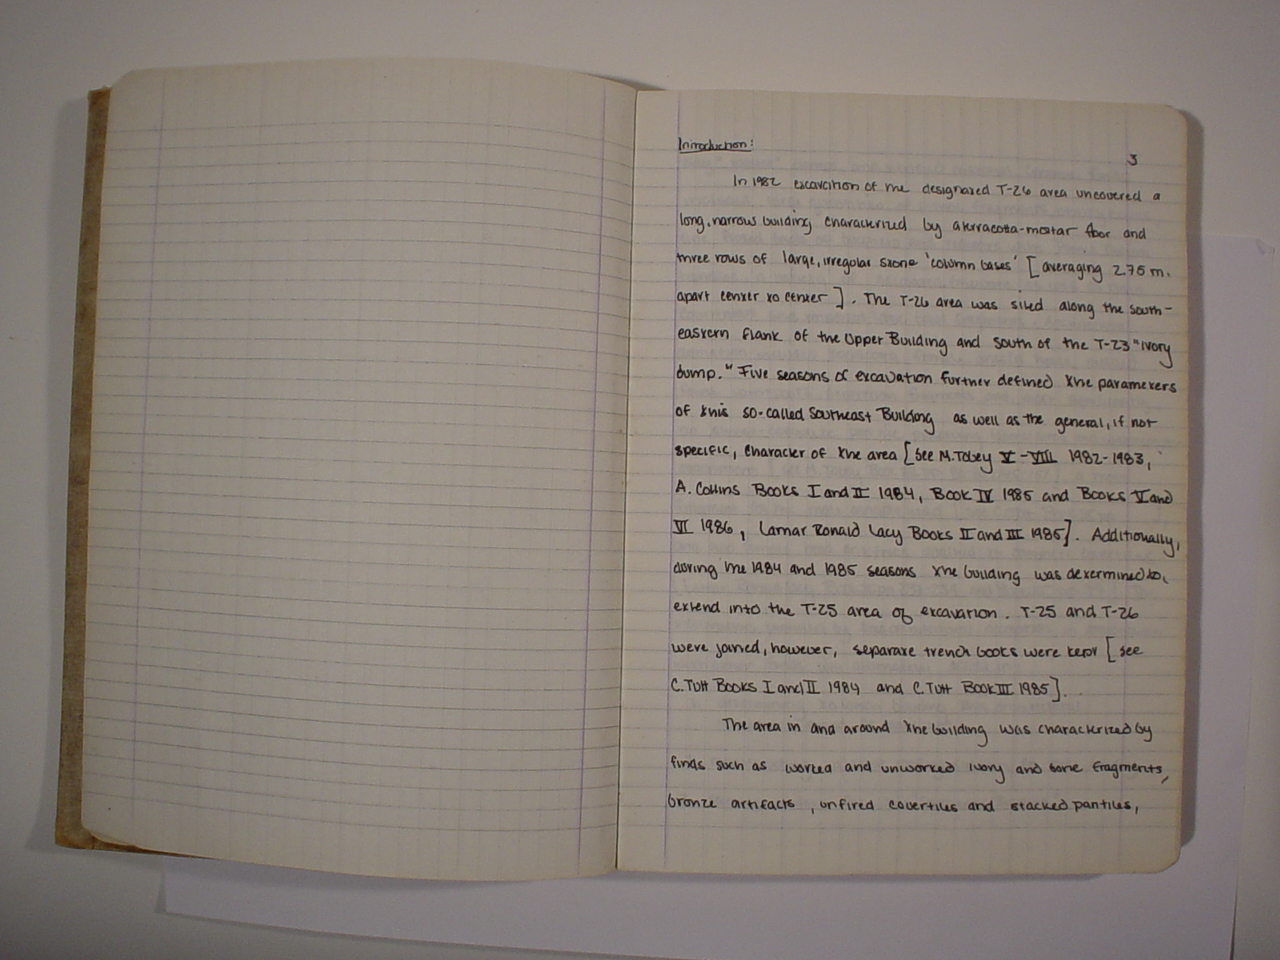 Introduction:
3
In 1982 excavation of the designated T-26 area uncovered a
long, narrow building characterized by a terracotta-mortar floor and
three rows of large, irregular stone 'column bases' [averaging 2.75 m.
apart center to center]. The T-26 area was sited along the south-
eastern flank of the Upper Building and south of the T-23 "ivory
dump." Five seasons of excavation further defined the parameters
of this so-called Southeast Building as well as the general, if not
specific, character of the area [see M. Tobey V-VIII 1982-1983,
A. Collins Books I and II 1984, Book IV 1985 and Books V and
VI 1986, Lamar Ronald Lacy Books II and III 1985]. Additionally,
during the 1984 and 1985 seasons the building was determined to
extend into the T-25 area of excavation. T-25 and T-26
were joined, however, separate trench books were kept [see
C. Tuft Books I and II 1984 and C. Tuft Book III 1985].
The area in and around the building was characterized by
finds such as worked and unworked ivory and bone fragments,
bronze artifacts, unfired covertiles and stacked pantiles,